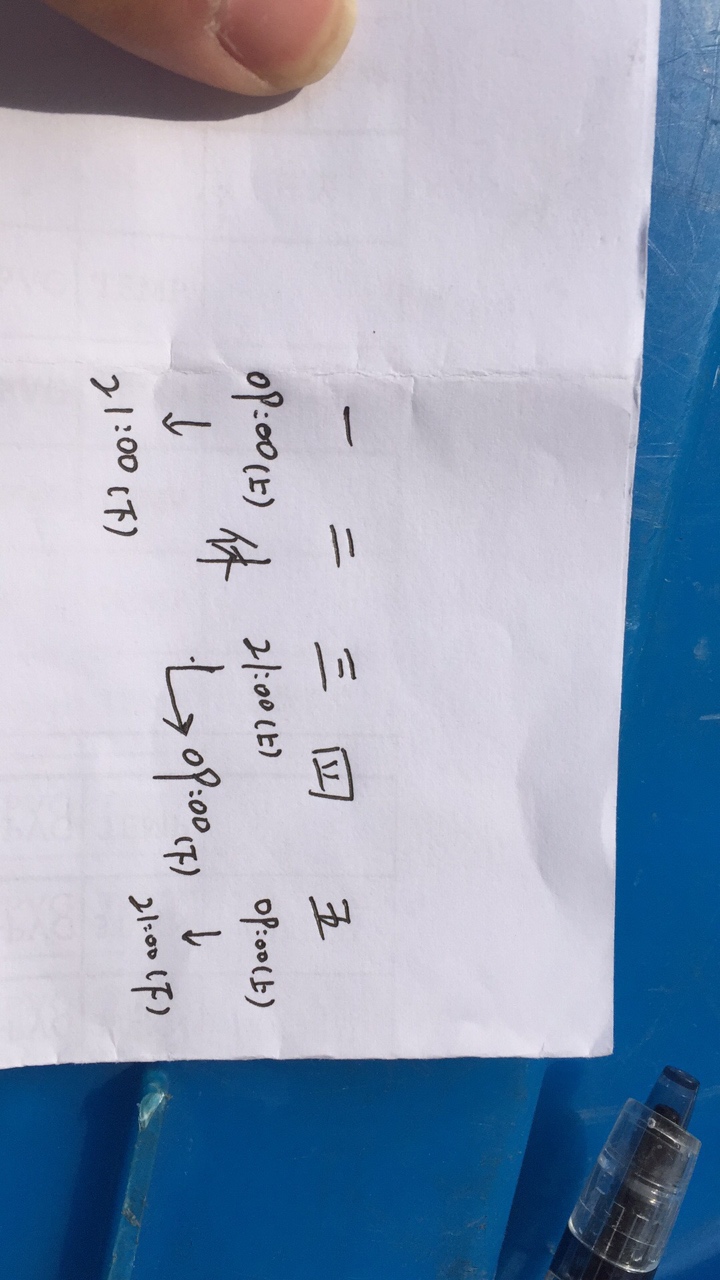 一 二 三 四 五
09:00(上) 休 21:00(上) 09:00(上)
↓ ↓ ↓
21:00(下) 09:00(下) 21:00(下)